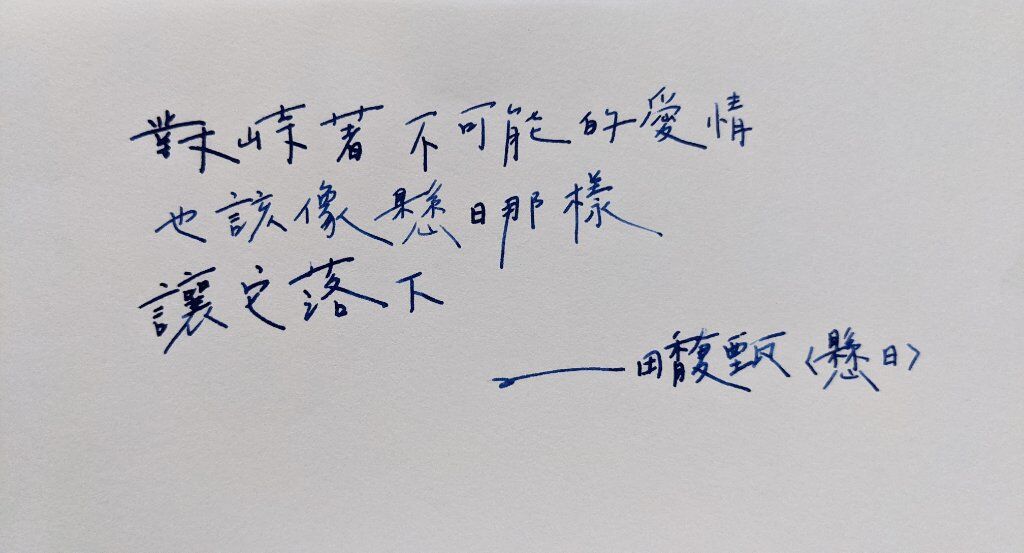 對峙著不可能的愛情
也該像懸日那樣
讓它落下
——田馥甄〈懸日〉